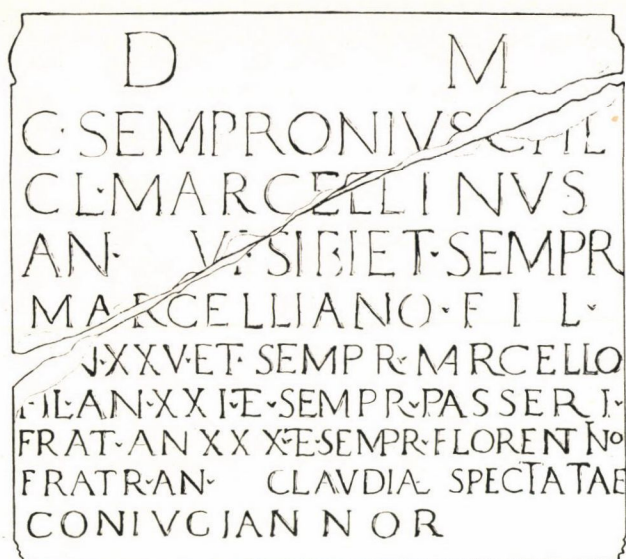 D M
C·SEMPRONIVS C·FIL
CL·MARCELLINVS
AN· V·F·SIBI ET·SEMPR
MARCELLIANO·FIL·
N·XXV·ET·SEMPR·MARCELLO
FIL AN·XXI·E·SEMPR·PASSERI·
FRAT·AN XXX·E·SEMPR·FLORENTINO
FRATR·AN· CLAVDIA SPECTATAE
CONIVGI ANNOR